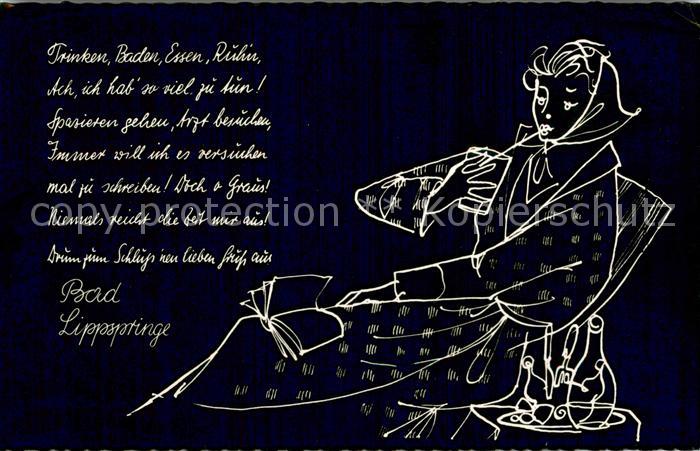 Trinken, Baden, Essen, Ruhn,
Ach, ich hab' so viel zu tun!
Spazieren gehen, Arzt besuchen,
Immer will ich es versuchen
mal zu schreiben! Doch o Graus!
copy protection ** Kopierschutz
Niemals reicht die Zeit mir aus!
Drum zum Schluß 'nen lieben Gruß aus
Bad
Lippspringe